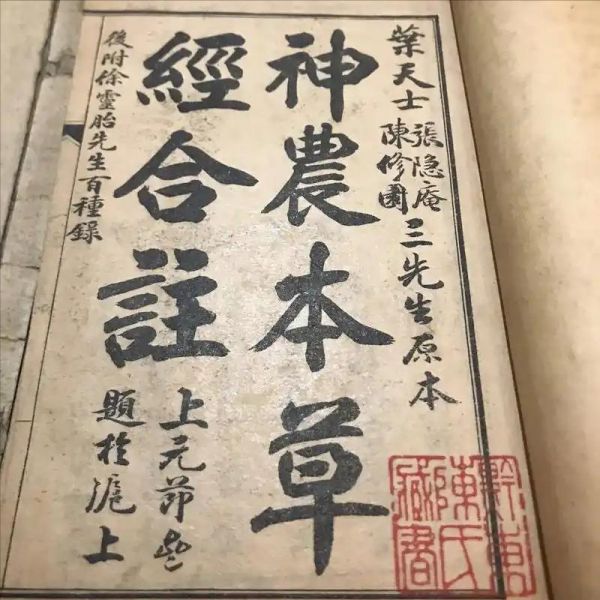 葉天士 張隐庵 陳修園 三先生原本
神農本草
經合註
上元節
題於滬上
後附徐靈胎先生百種錄
陳氏
藏書